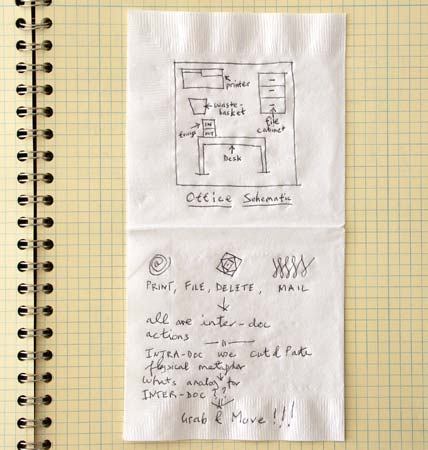 printer
waste-
basket
file
cabinet
trays
IN
OUT
Desk
Office Schematic
PRINT, FILE, DELETE, MAIL
all are inter-doc
actions
INTRA-DOC we cut & Paste
physical metaphor
whats analog for
INTER-DOC ??
Grab & Move!!!